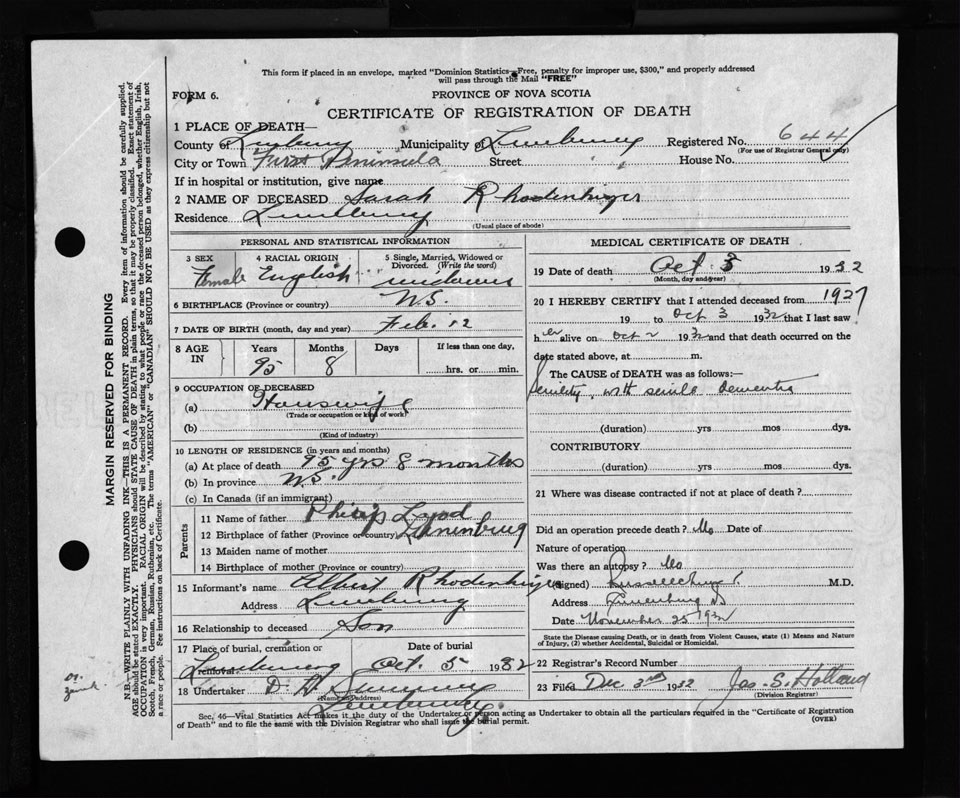 This form if placed in an envelope, marked "Dominion Statistics—Free, penalty for improper use, $300," and properly addressed
will pass through the Mail "FREE"
FORM 6.
PROVINCE OF NOVA SCOTIA
CERTIFICATE OF REGISTRATION OF DEATH
1 PLACE OF DEATH—
County of Lunenburg Municipality of Lunenburg Registered No. 644
(For use of Registrar General only)
City or Town First Peninsula Street House No.
If in hospital or institution, give name
2 NAME OF DECEASED Sarah Rhodenhizer
Residence Lunenburg
(Usual place of abode)
PERSONAL AND STATISTICAL INFORMATION
3 SEX 4 RACIAL ORIGIN 5 Single, Married, Widowed or
Divorced. (Write the word)
Female English
6 BIRTHPLACE (Province or country) N.S.
7 DATE OF BIRTH (month, day and year) Feb. 12
8 AGE IN Years Months Days If less than one day,
95 8 hrs. or min.
9 OCCUPATION OF DECEASED
(a) Housewife
(Trade or occupation or kind of work)
(b)
(Kind of industry)
10 LENGTH OF RESIDENCE (in years and months)
(a) At place of death 95 yrs 8 months
(b) In province N.S.
(c) In Canada (if an immigrant)
Parents
11 Name of father Philip
12 Birthplace of father (Province or country) Lunenburg
13 Maiden name of mother
14 Birthplace of mother
15 Informant's name Albert Rhodenhizer
Address Lunenburg
16 Relationship to deceased Son
17 Place of burial, cremation or removal Date of burial
Lunenburg Oct. 5 1932
18 Undertaker
(Name and Address)
Lunenburg
MEDICAL CERTIFICATE OF DEATH
19 Date of death Oct. 3 1932
(Month, day and year)
20 I HEREBY CERTIFY that I attended deceased from 1927
19 to Oct 3 1932 that I last saw
her alive on Oct 2 1932 and that death occurred on the
date stated above, at m.
The CAUSE of DEATH was as follows:—
Senility, with senile dementia
(duration) yrs mos dys.
CONTRIBUTORY
(duration) yrs mos dys.
21 Where was disease contracted if not at place of death?
Did an operation precede death? No Date of
Nature of operation
Was there an autopsy? No
(Signed) M.D.
Address Lunenburg NS
Date November 25 1932
State the Disease causing Death, or in death from Violent Causes, state (1) Means and Nature
of Injury, (2) whether Accidental, Suicidal or Homicidal.
22 Registrar's Record Number
23 Filed Dec 3rd 1932 Jas. S. Holland
(Division Registrar)
Sec. 46—Vital Statistics Act makes it the duty of the Undertaker or person acting as Undertaker to obtain all the particulars required in the "Certificate of Registration
of Death" and to file the same with the Division Registrar who shall issue the burial permit.
(OVER)
MARGIN RESERVED FOR BINDING
N.B.—WRITE PLAINLY WITH UNFADING INK—THIS IS A PERMANENT RECORD. Every item of information should be carefully supplied.
AGE should be stated EXACTLY. PHYSICIANS should STATE CAUSE OF DEATH in plain terms, so that it may be properly classified. Exact statement of
OCCUPATION is very important. RACIAL ORIGIN will be described by stating to what people or race the deceased person belonged, whether English, Irish,
Scotch, French, German, Russian, Ruthenian, etc. The terms "AMERICAN" or "CANADIAN" SHOULD NOT BE USED as they express citizenship but not
a race or people. See instructions on back of Certificate.